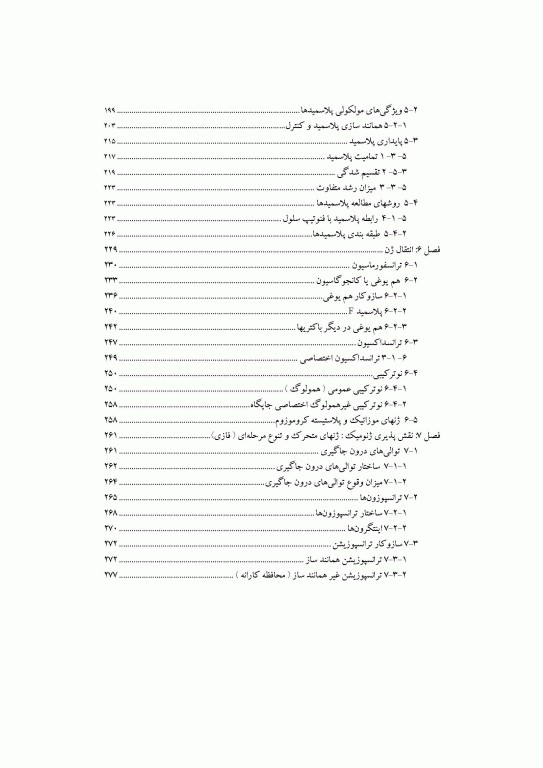 ۵-۲ ویژگی‌های مولکولی پلاسمیدها ... ۱۹۹
۵-۲-۱ همانند سازی پلاسمید و کنترل ... ۲۰۳
۵-۳ پایداری پلاسمید ... ۲۱۵
۵-۳-۱ تمامیت پلاسمید ... ۲۱۷
۵-۳-۲ تقسیم شدگی ... ۲۱۹
۵-۳-۳ میزان رشد متفاوت ... ۲۲۳
۵-۴ روشهای مطالعه پلاسمیدها ... ۲۲۳
۵-۴-۱ رابطه پلاسمید با فنوتیپ سلول ... ۲۲۳
۵-۴-۲ طبقه بندی پلاسمیدها ... ۲۲۶
فصل ۶: انتقال ژن ... ۲۲۹
۶-۱ ترانسفورماسیون ... ۲۳۰
۶-۲ هم یوغی یا کانجوگاسیون ... ۲۳۳
۶-۲-۱ سازوکار هم یوغی ... ۲۳۶
۶-۲-۲ پلاسمید F ... ۲۴۰
۶-۲-۳ هم یوغی در دیگر باکتریها ... ۲۴۲
۶-۳ ترانسداکسیون ... ۲۴۷
۶-۳-۱ ترانسداکسیون اختصاصی ... ۲۴۹
۶-۴ نوترکیبی ... ۲۵۰
۶-۴-۱ نوترکیبی عمومی ( همولوگ ) ... ۲۵۰
۶-۴-۲ نوترکیبی غیرهمولوگ اختصاصی جایگاه ... ۲۵۸
۶-۵ ژنهای موزائیک و پلاستیسته کروموزوم ... ۲۵۸
فصل ۷: نقش پذیری ژنومیک : ژنهای متحرک و تنوع مرحله‌ای ( فازی) ... ۲۶۱
۷-۱ توالی‌های درون جاگیری ... ۲۶۱
۷-۱-۱ ساختار توالی‌های درون جاگیری ... ۲۶۲
۷-۱-۲ میزان وقوع توالی‌های درون جاگیری ... ۲۶۴
۷-۲ ترانسپوزون‌ها ... ۲۶۵
۷-۲-۱ ساختار ترانسپوزون‌ها ... ۲۶۸
۷-۲-۲ اینتگرون‌ها ... ۲۷۰
۷-۳ سازوکار ترانسپوزیشن ... ۲۷۲
۷-۳-۱ ترانسپوزیشن همانند ساز ... ۲۷۲
۷-۳-۲ ترانسپوزیشن غیر همانند ساز ( محافظه کارانه ) ... ۲۷۷